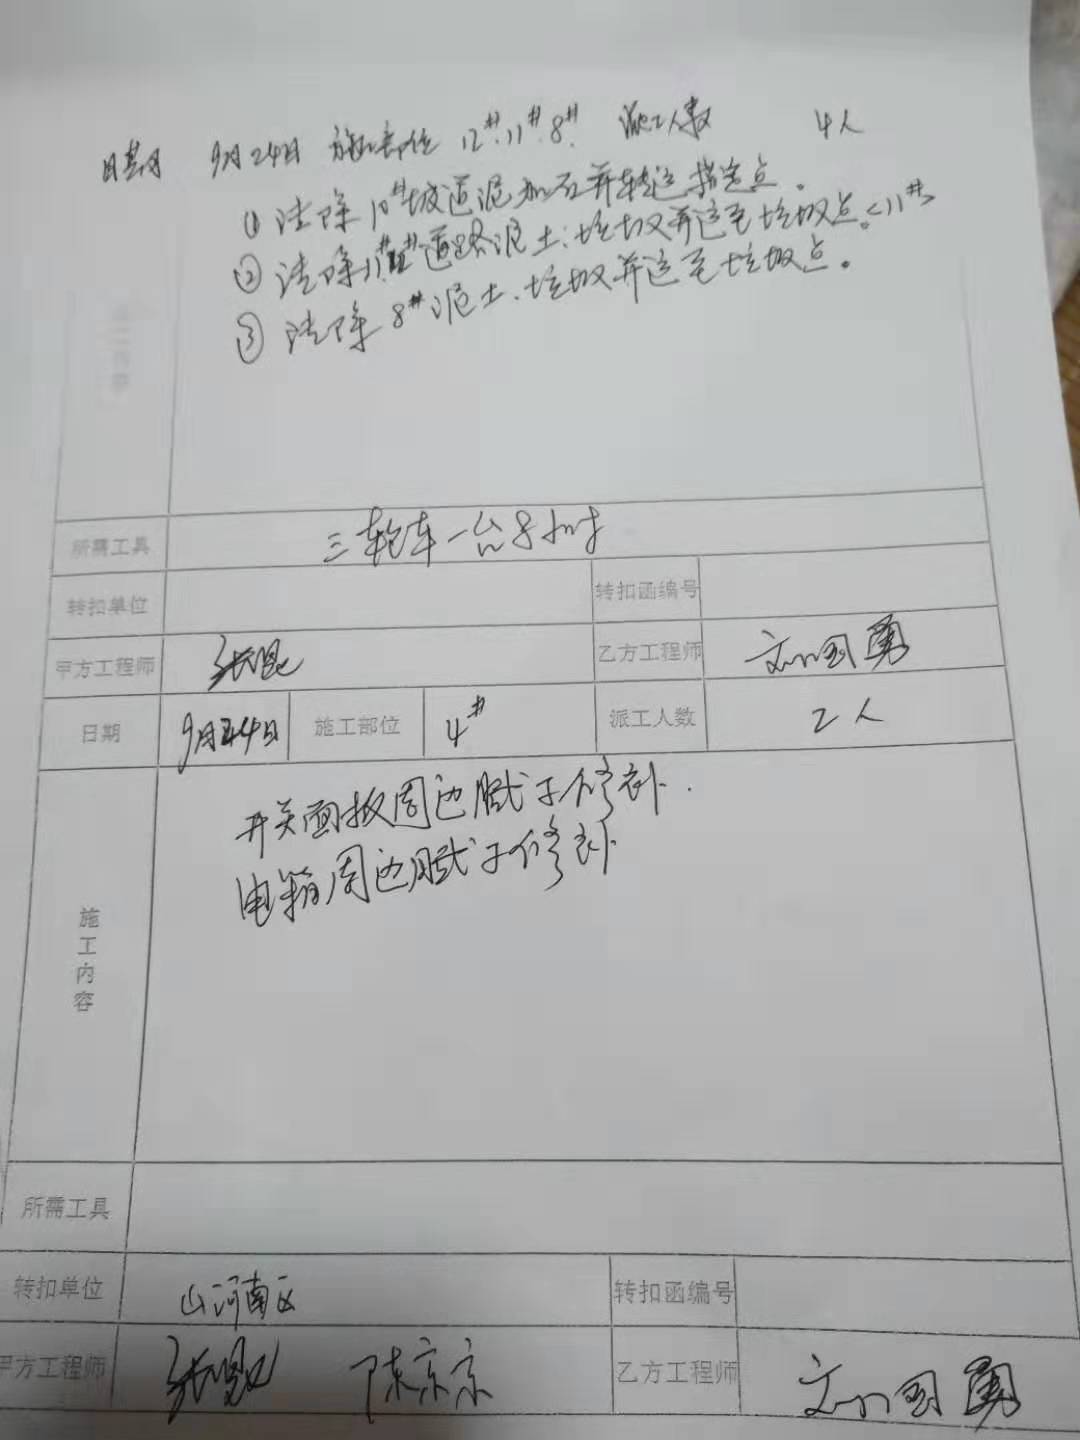 日期 9月24日 施工部位 12#.11#.8#. 派工人数 4人
① 清除10#坡道泥加石并转运指定点。
② 清除11#12#道路泥土、垃圾并运至垃圾点。<11#>
③ 清除8#泥土、垃圾并运至垃圾点。
所需工具 三轮车一台8小时
转扣单位 转扣函编号
甲方工程师 张昆 乙方工程师 刘国勇
日期 9月24日 施工部位 4# 派工人数 2人
开关面板周边腻子修补.
电箱周边腻子修补
施工内容
所需工具
转扣单位 山河南区 转扣函编号
甲方工程师 张昆 陈京京 乙方工程师 刘国勇